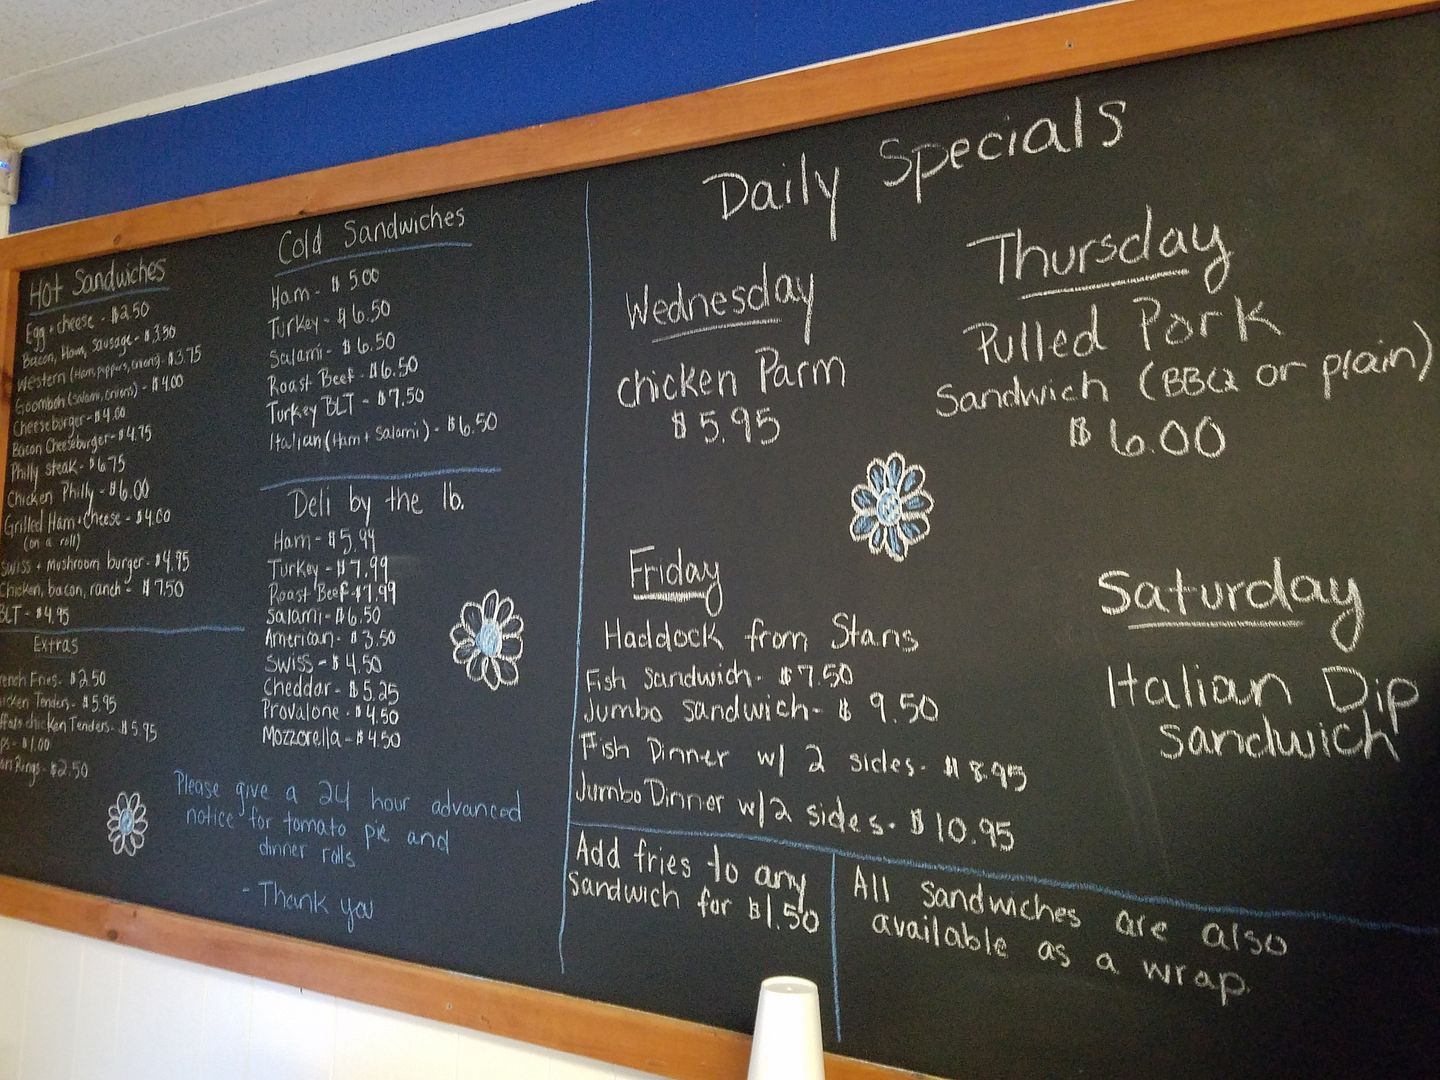 Hot Sandwiches
Egg + cheese - $2.50
Bacon, Ham, Sausage - $3.50
Western (Ham, peppers, onions) - $3.75
Goombah (Salami, onions) - $4.00
Cheeseburger - $4.00
Bacon Cheeseburger - $4.75
Philly steak - $6.75
Chicken Philly - $6.00
Grilled Ham + Cheese - $4.00
(on a roll)
Swiss + Mushroom burger - $4.95
Chicken, bacon, ranch - $7.50
BLT - $4.95
Extras
rench Fries - $2.50
icken Tenders - $5.95
ffalo chicken Tenders - $5.95
ps - $1.00
Rings - $2.50
Cold Sandwiches
Ham - $5.00
Turkey - $6.50
Salami - $6.50
Roast Beef - $6.50
Turkey BLT - $7.50
Italian (Ham + Salami) - $6.50
Deli by the lb.
Ham - $5.99
Turkey - $7.99
Roast Beef - $7.99
Salami - $6.50
American - $3.50
Swiss - $4.50
Cheddar - $5.25
Provalone - $4.50
Mozzorella - $4.50
Please give a 24 hour advanced
notice for tomato pie and
dinner rolls
- Thank you
Daily Specials
Wednesday
Chicken Parm
$5.95
Thursday
Pulled Pork
Sandwich (BBQ or plain)
$6.00
Friday
Haddock from Stans
Fish Sandwich - $7.50
Jumbo Sandwich - $9.50
Fish Dinner w/ 2 sides - $8.95
Jumbo Dinner w/2 sides - $10.95
Saturday
Italian Dip
Sandwich
Add fries to any
Sandwich for $1.50
All Sandwiches are also
available as a wrap.